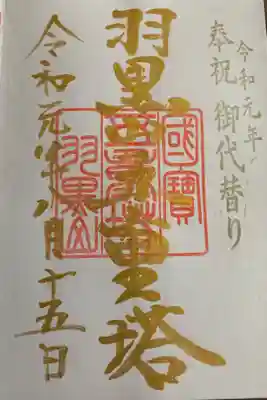 令和元年
奉祝 御代替り
羽黒山五重塔
國寶
羽黒山
令和元年八月十五日